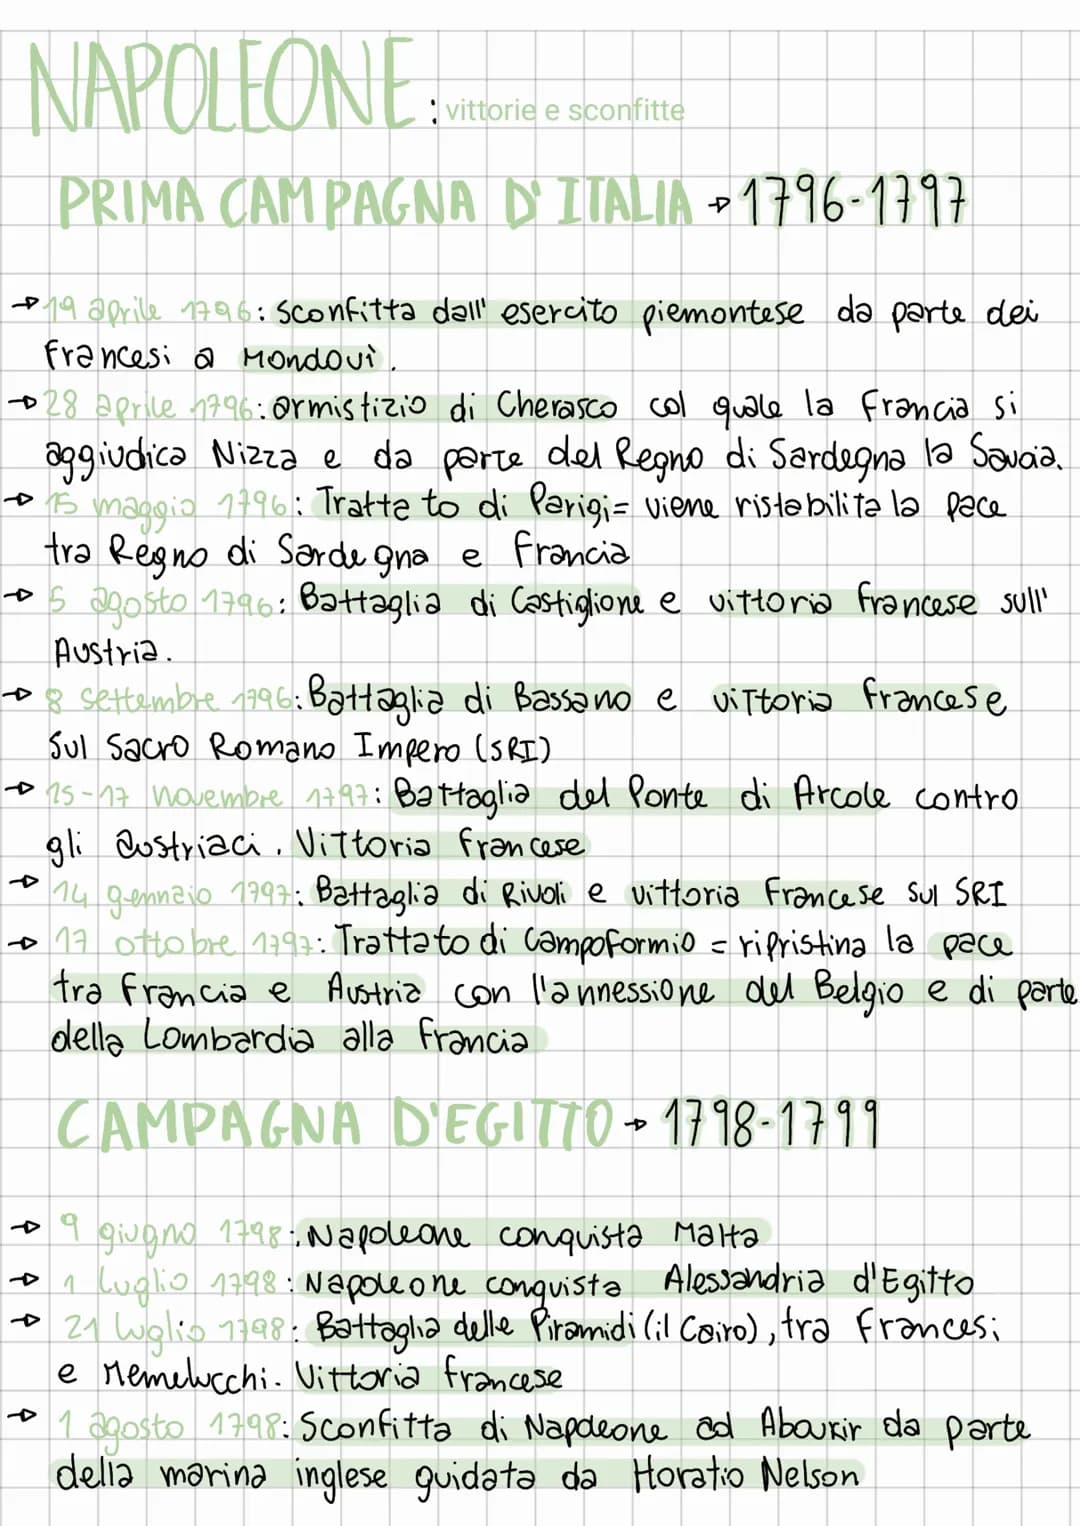 NAPOLEONE: vittorie e sconfitte
PRIMA CAMPAGNA D'ITALIA → 1796-1797
→ 19 aprile 1796: sconfitta dall' esercito piemontese da parte dei
francesi a Mondovì.
→ 28 aprile 1796: armistizio di Cherasco col quale la Francia si
aggiudica Nizza e da parte del Regno di Sardegna la Savoia.
→ 15 maggio 1796: Trattato di Parigi = viene ristabilita la pace
tra Regno di Sardegna e Francia
→ 5 agosto 1796: Battaglia di Castiglione e vittoria francese sull'
Austria.
→ 8 settembre 1796: Battaglia di Bassano e vittoria francese
sul Sacro Romano Impero (SRI)
→ 15-17 novembre 1797: Battaglia del Ponte di Arcole contro
gli austriaci. Vittoria francese
→ 14 gennaio 1797: Battaglia di Rivoli e vittoria francese sul SRI
→ 17 ottobre 1797: Trattato di Campoformio = ripristina la pace
tra Francia e Austria con l'annessione del Belgio e di parte
della Lombardia alla Francia
CAMPAGNA D'EGITTO → 1798-1799
→ 9 giugno 1798: Napoleone conquista Malta
→ 1 luglio 1798: Napoleone conquista Alessandria d'Egitto
→ 21 luglio 1798: Battaglia delle Piramidi (il Cairo), tra francesi
e Memelucchi. Vittoria francese
→ 1 agosto 1798: Sconfitta di Napoleone ad Aboukir da parte
della marina inglese guidata da Horatio Nelson